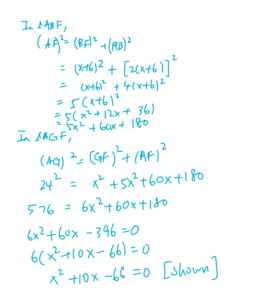 In △ABF,
(AF)² = (BF)² + (AB)²
= (x+6)² + [2(x+6)]²
= (x+6)² + 4(x+6)²
= 5(x+6)²
= 5(x² + 12x + 36)
= 5x² + 60x + 180
In △AGF,
(AG)² = (GF)² + (AF)²
24² = x² + 5x² + 60x + 180
576 = 6x² + 60x + 180
6x² + 60x - 396 = 0
6(x² + 10x - 66) = 0
x² + 10x - 66 = 0 [shown]